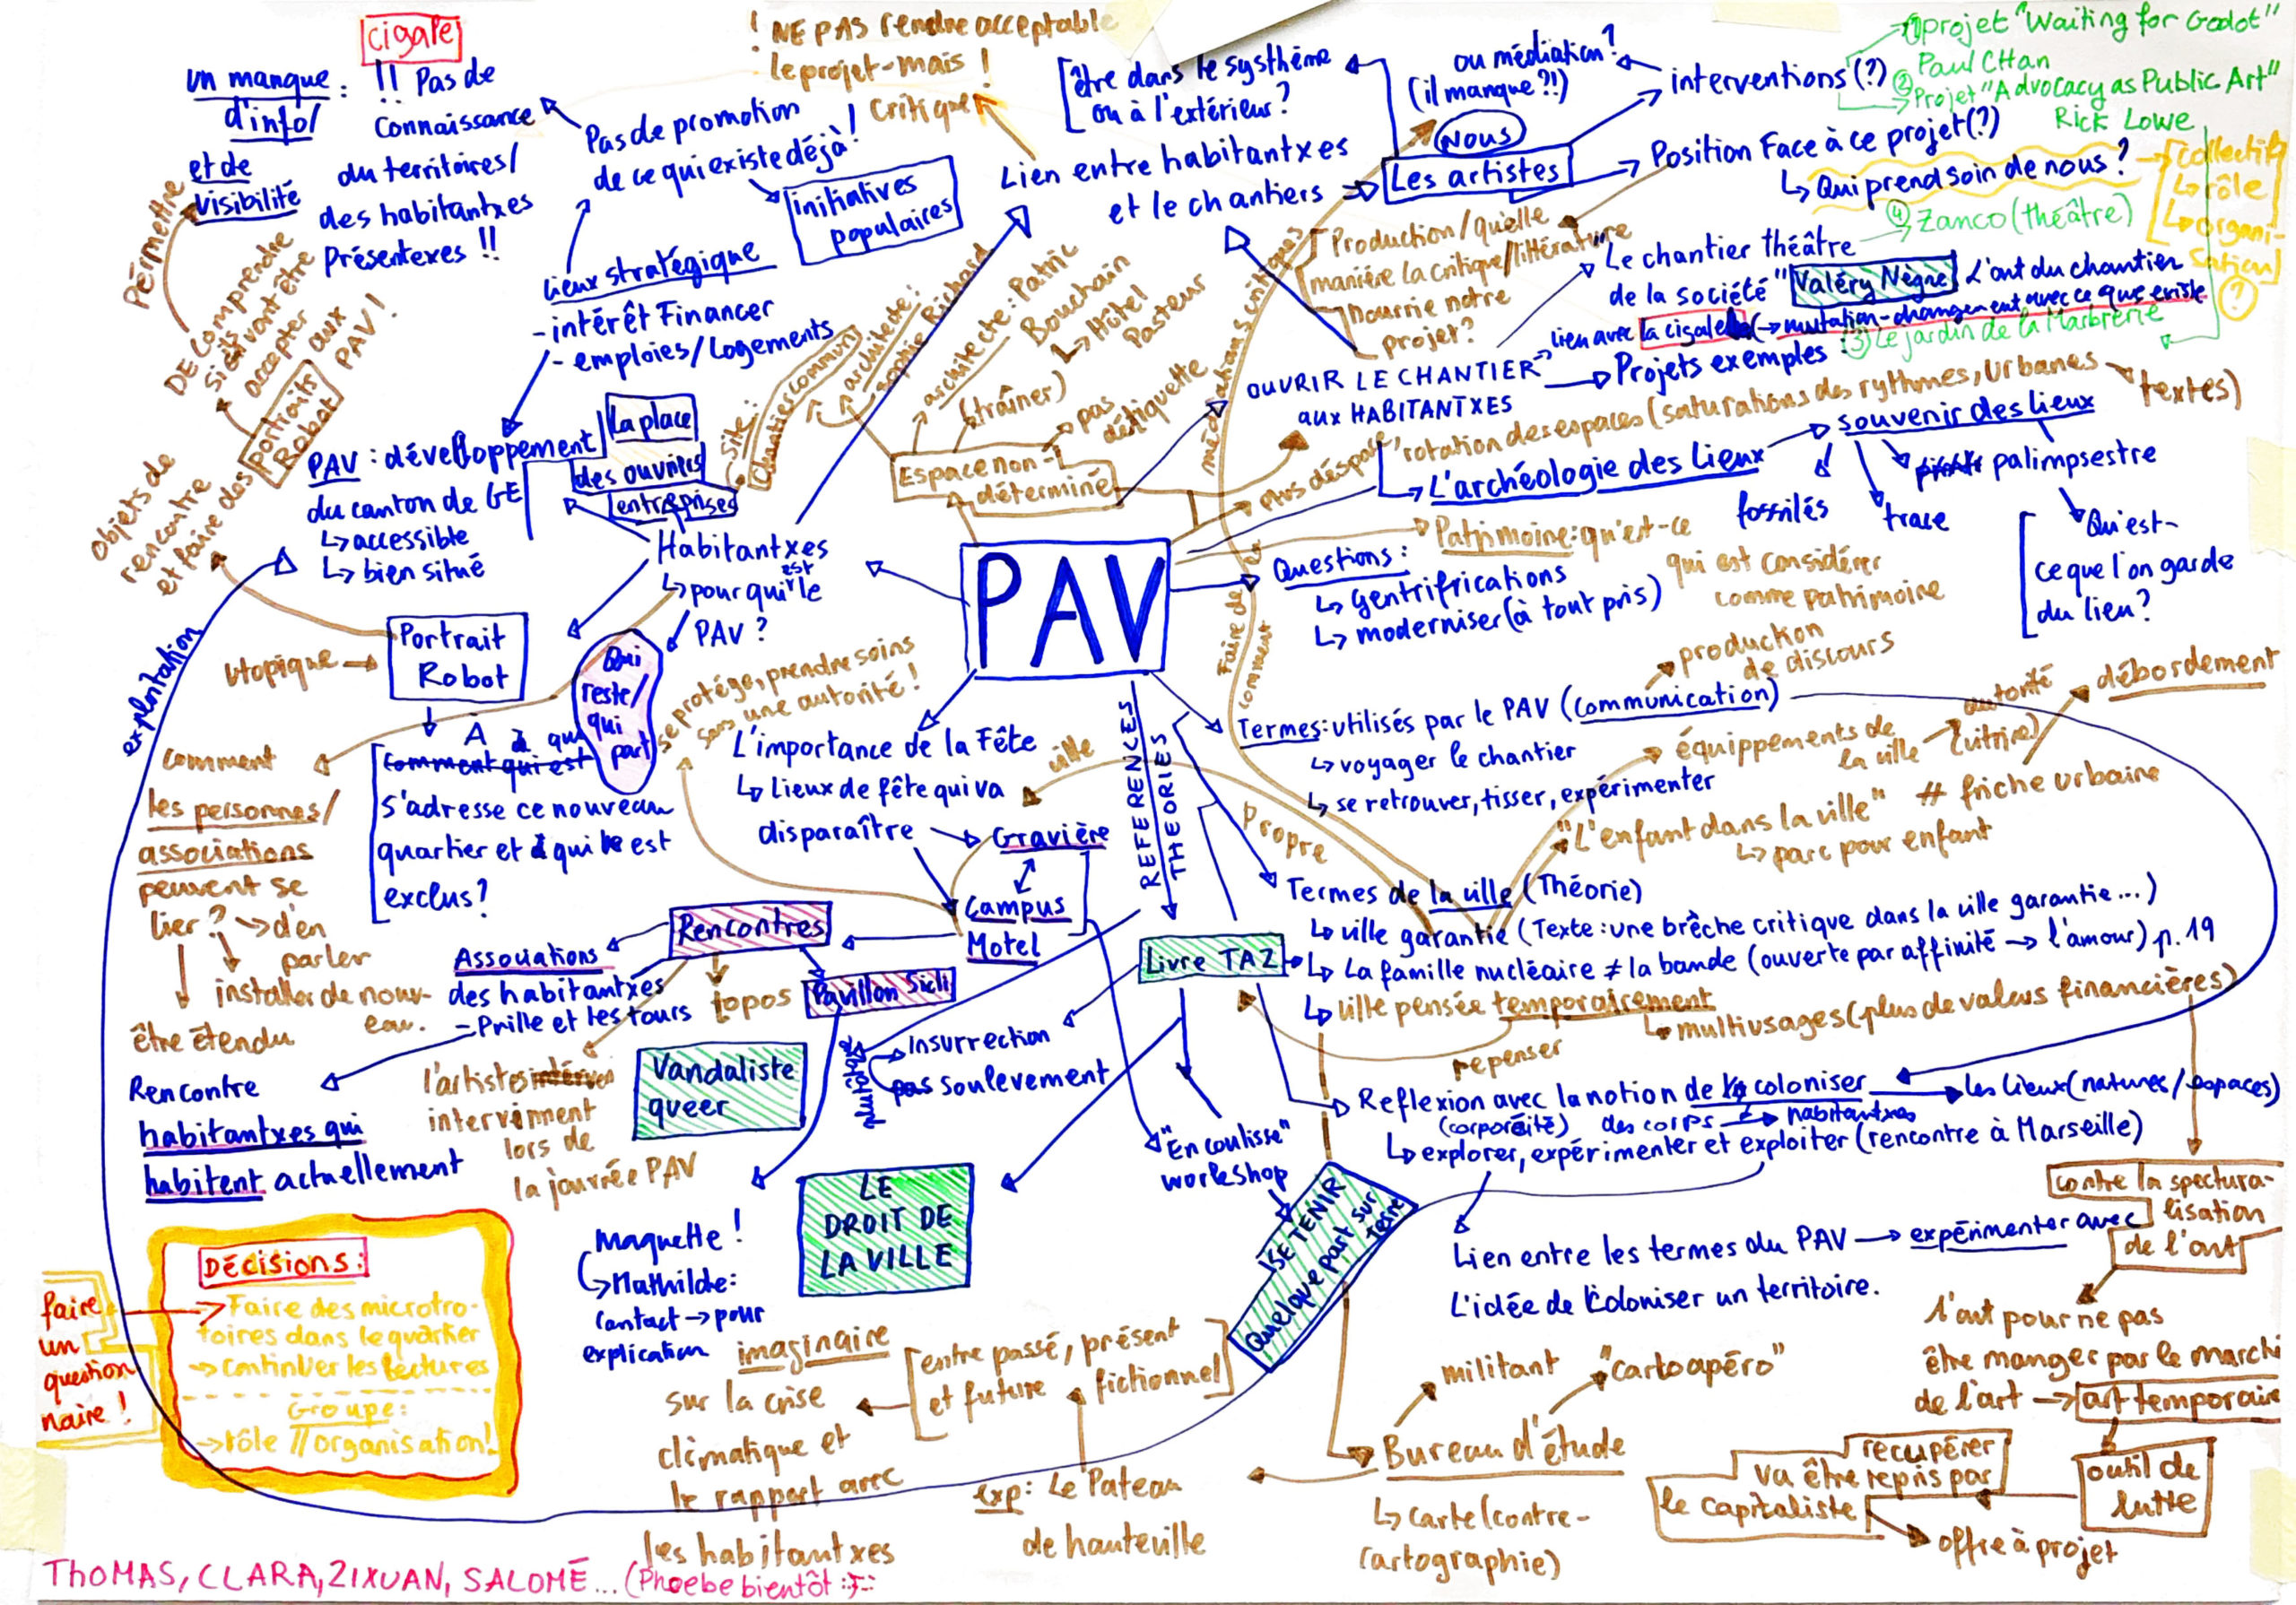 cigale
un manque :
d'info/
et de
visibilité
!! Pas de
connaissance
du territoires/
des habitantxes
Présentexes !!
Pas de promotion
de ce qui existe déjà !
initiatives
populaires
! NE PAS rendre acceptable
le projet - mais !
Critique
Lien entre habitantxes
et le chantiers
être dans le systhème
ou à l'extérieur ?
ou médiation ?
(il manque ?!)
Nous
Les artistes
interventions (?)
① projet "Waiting for Godot"
Paul CHan
② Projet "Advocacy as Public Art"
Rick Lowe
Position Face à ce projet (?)
↳ Qui prend soin de nous ?
Collectif
↳ rôle
↳ organi-
sation
?
④ Zanco (théâtre)
Production/quelle
manière la critique/littérature
nourrie notre
projet ?
"Le chantier théâtre
de la société"
Valéry Nègre
L'art du chantier
lien avec la cigale (→ mutation - changement avec ce que existe
③ Le jardin de la Marbrerie
OUVRIR LE CHANTIER
aux HABITANTXES
Projets exemples :
médiations critiques
Permettre
DE comprendre
accepter
aux
PAV !
Objets de
rencontre
et faire des
Portraits
Robot
lieux stratégique
- intérêt Financer
- emploies/Logements
PAV : dévelloppement
du canton de GE
↳ accessible
↳ bien situé
La place
des ouvriers
entreprises
Site :
Chantiers communs
architecte :
Sophie Richard
architecte : Patric
Bouchain
↳ Hôtel
Pasteur
(traîner)
pas
détiquette
Espace non-
déterminé
"rotation des espaces (saturations des rythmes, urbanes
textes)
L'archéologie des Lieux
souvenir des lieux
fossilés
trace
palimpsestre
Qu'est-
ce que l'on garde
du lieu ?
Habitantxes
↳ pour qui est le
PAV ?
PAV
Questions :
↳ gentrifrications
↳ moderniser (à tout pris)
Patrimoine : qu'est-ce
qui est considérer
comme patrimoine
explortation
utopique
Portrait
Robot
Qui
reste/
qui
part
À à qui
comment qui est
s'adresse ce nouveau
quartier et à qui le est
exclus ?
se protége, prendre soins
sans une autorité !
L'importance de la Fête
↳ Lieux de fête qui va
disparaître
Gravière
Campus
Motel
REFERENCES
THEORIES
ville
Propre
Faire de
comment
Termes : utilisés par le PAV (communication)
↳ voyager le chantier
↳ se retrouver, tisser, expérimenter
production
de discours
équippements de
la ville
autorité
(vitrine)
débordement
"L'enfant dans la ville"
↳ parc pour enfant
# friche urbaine
comment
les personnes/
associations
peuvent se
lier ? → d'en
parler
installer de nouv-
eau.
être étendu
Rencontres
Associations
des habitantxes
- Prille et les tours
topos
Pavillon Sicli
Rencontre
habitantxes qui
habitent actuellement
l'artistes
intervinnent
lors de
la journée PAV
Vandaliste
queer
Termes de la ville (Théorie)
↳ ville garantie (Texte : une brêche critique dans la ville garantie...)
↳ La famille nucléaire ≠ la bande (ouverte par affinité → l'amour) p. 19
↳ ville pensée temporairement
↳ multiusages (plus de valeurs financières)
repenser
Livre TAZ
Insurrection
pas soulevement
"En coulisse"
workshop
Reflexion avec la notion de coloniser
(corporéité)
des corps → habitantxes
les lieux (natures/espaces)
↳ explorer, expérimenter et exploiter (rencontre à Marseille)
LE
DROIT DE
LA VILLE
SE TENIR
Quelque part sur
terre
Maquette !
↳ Mathilde :
contact → pour
explication
Lien entre les termes du PAV → expérimenter avec
L'idée de coloniser un territoire.
contre la spectura-
lisation
de l'art
l'art pour ne pas
être manger par le marché
de l'art → art temporaire
outil de
lutte
récupérer
va être repris par
le capitaliste
offre à projet
Décisions :
→ Faire des microtro-
toires dans le quartier
→ continuer les lectures
Groupe :
→ rôle // organisation !
faire
un
question
naire !
imaginaire
sur la crise
climatique et
le rapport avec
les habitantxes
entre passé, présent
et future
fictionnel
exp : Le Pateau
de hauteville
militant
"cartoapéro"
Bureau d'étude
↳ carte (contre-
cartographie)
THOMAS, CLARA, ZIXUAN, SALOMÉ... (Phoebe bientôt :)